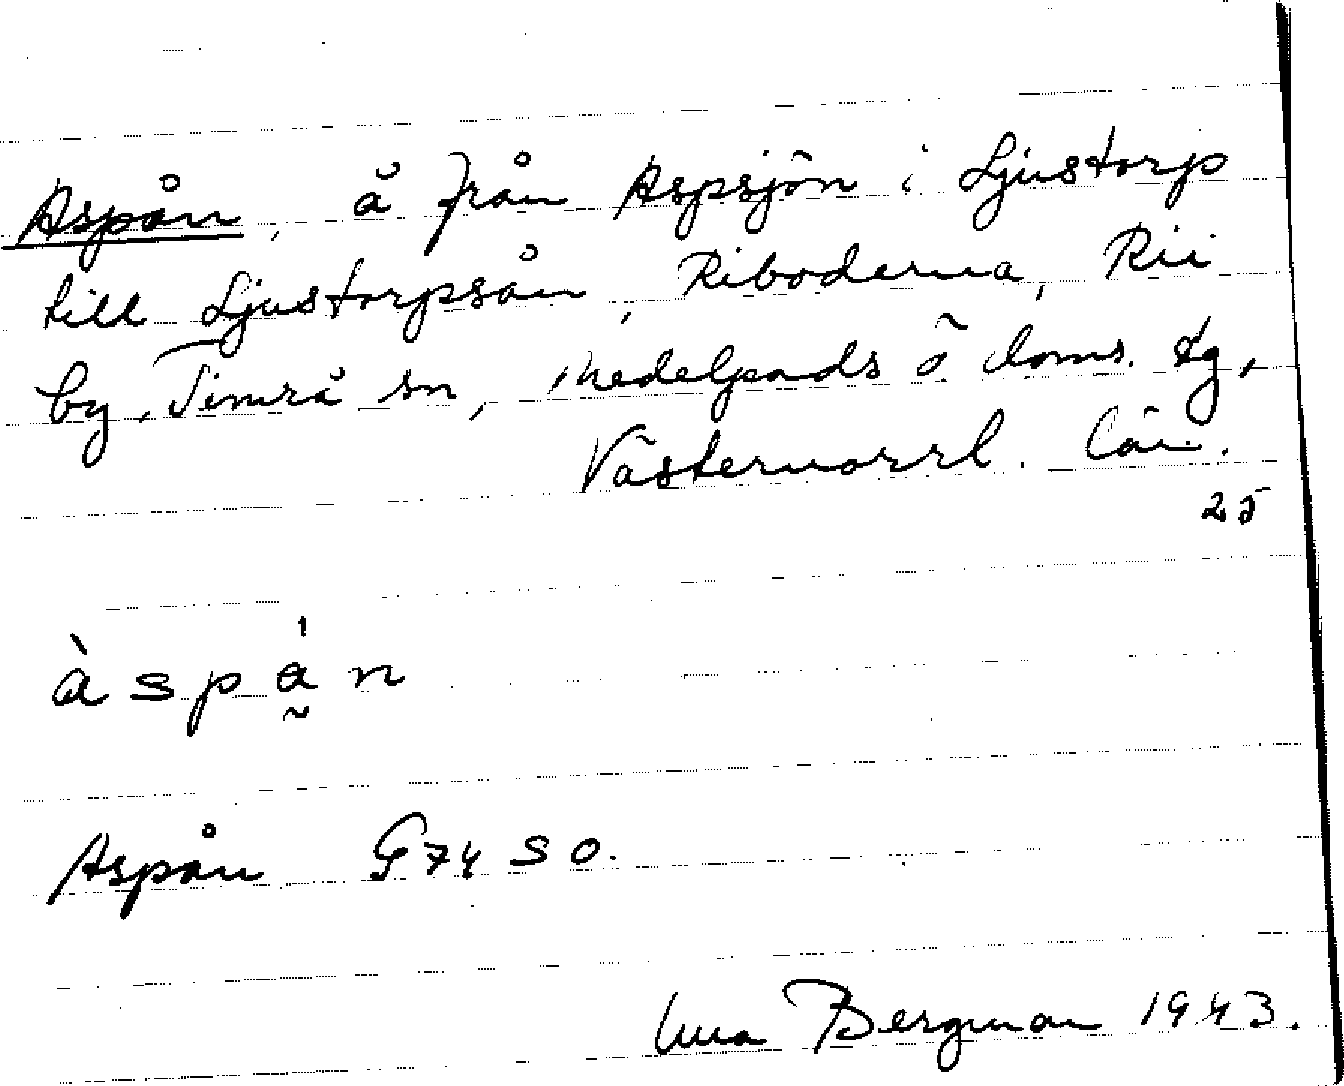 Aspån, å från Aspsjön i Ljustorp
till Ljustorpsån, Riboderna, Rii
by, Timrå sn, Medelpads ö doms. tg,
Västernorrl. län.
25
àspån
Aspån G 74 SO.
Bergman 1943.